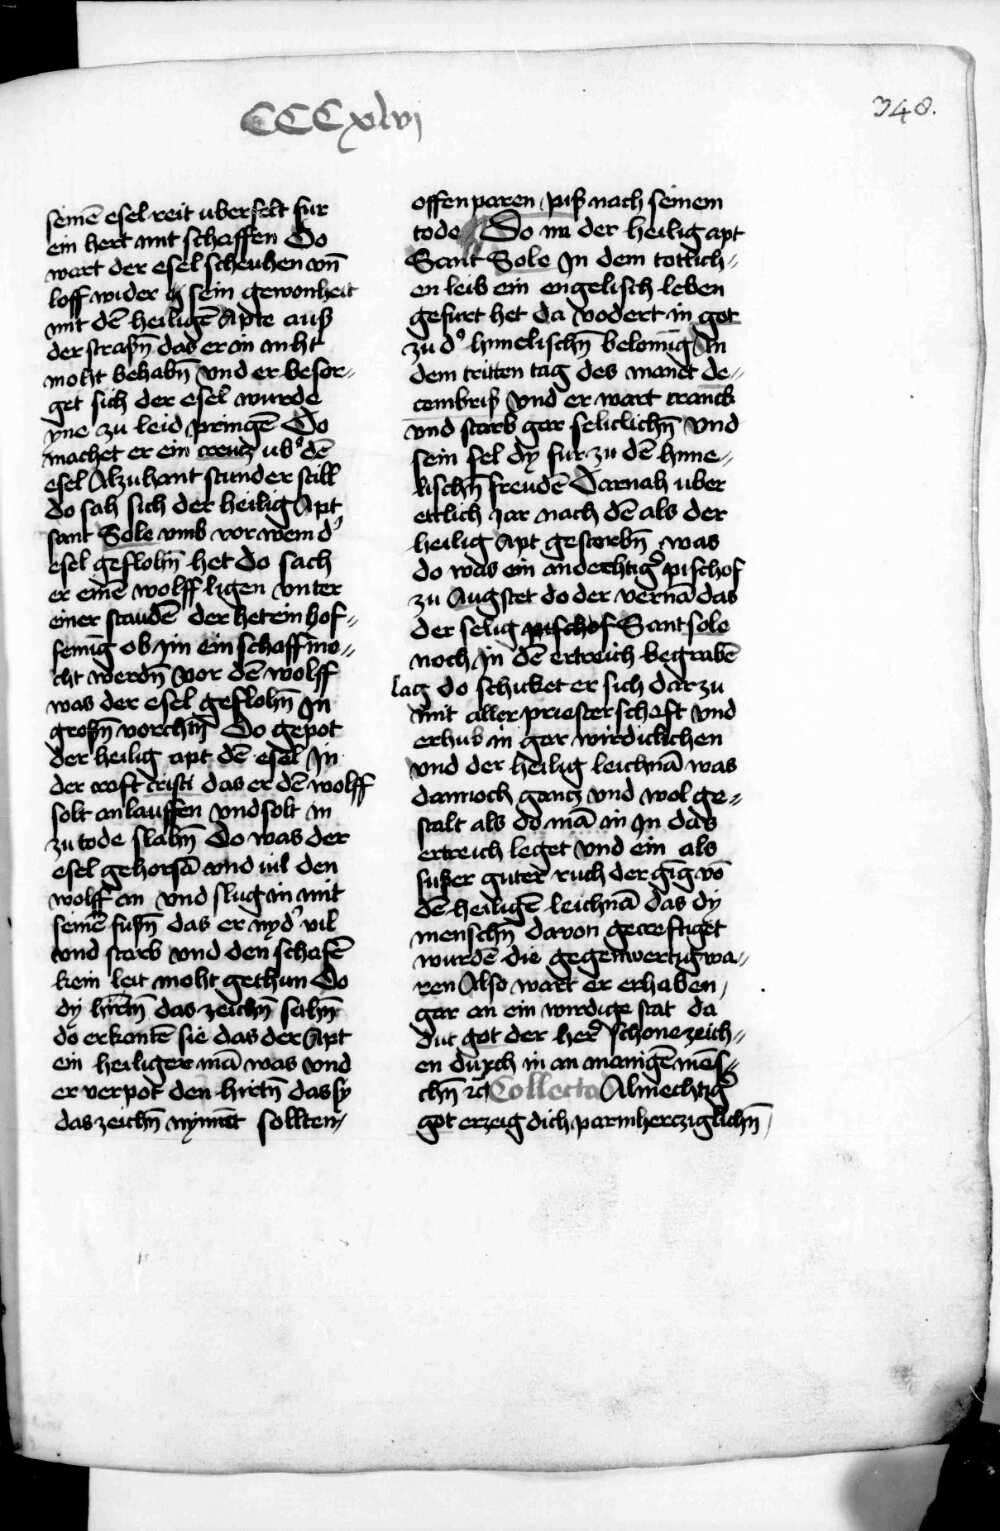 CCCxlvj
348.
seinē esel reit uberfelt fur
ein hert mit schaffen Do
wart der esel scheuhen vn̄
loff wider sein gewonheit
mit dē heiligē Apte auß
der straßn̄ das er in niht
moht behabn̄ vnd er besor⸗
get sich der esel wurde
yne zu leid pringē Do
machet er ein creutz ub᾿ dē
esel Alzuhant stund er still
do sah sich der heilig Apt
sant Sole vmb vor wem d᾿
esel geflohn̄ het do sach
er einē wolff ligen vnter
einer staudē der het ein hof⸗
fenūg ob jm ein schoff mo⸗
cht werdn̄ vor dē wolff
was der esel geflohn̄ jn
großn̄ vorchtn̄ Do gepot
der heilig apt dē esel jn
der craft cristi das er dē wolff
solt anlauffen vnd solt in
zu tode slahn̄ Do was der
esel gehorsā vnd vil den
wolff an vnd slug in mit
seinē fußn̄ das er nyd᾿ vil
vnd starb vnd den schafē
kein leit moht gethun Do
dy hirtn̄ das zeichn̄ sahn̄
do erkontē sie das der Apt
ein heiliger mā was vnd
er verpot den hirtn̄ das sy
das zeichn̄ nymāt sollten
offenparen piß nach seinem
tode Do nu der heilig apt
Sant Sole jn dem totlich⸗
en leib ein engelisch leben
gefuret het da vodert in got
zu d᾿ himelischn̄ belonūg An
dem tritten tag des manet de⸗
cembris vnd er wart kranck
vnd starb gar seliclichn̄ vnd
sein sel dy fur zu dē hime⸗
lischn̄ freudē Darnah uber
ettlich jar nach dē als der
heilig Apt gestorbn̄ was
do was ein andechtig᾿ pischof
zu Augstet do der vernā das
der selig pischof Sant sole
noch jn dē ertreich begrabē
lag do schicket er sich dar zu
mit aller priesterschaft vnd
erhub in gar wirdiclichen
vnd der heilig leichnā was
dannoch gantz vnd wol ge⸗
stalt als do mā in jn das
ertreich leget vnd ein als
sußer guter ruch der gīg vō
dē heiligē leichnā das dy
menschn̄ davon gecreftiget
wurdē die gegenwertig wa⸗
ren Also wart er erhaben
gar an ein wirdige stat da
dut got der her᾿ schone zeich⸗
en durch in an manigē mēs⸗
chn̄ ꝛc̄ Collecta Almechtig᾿
got erzeig dich parmhercziglichn̄